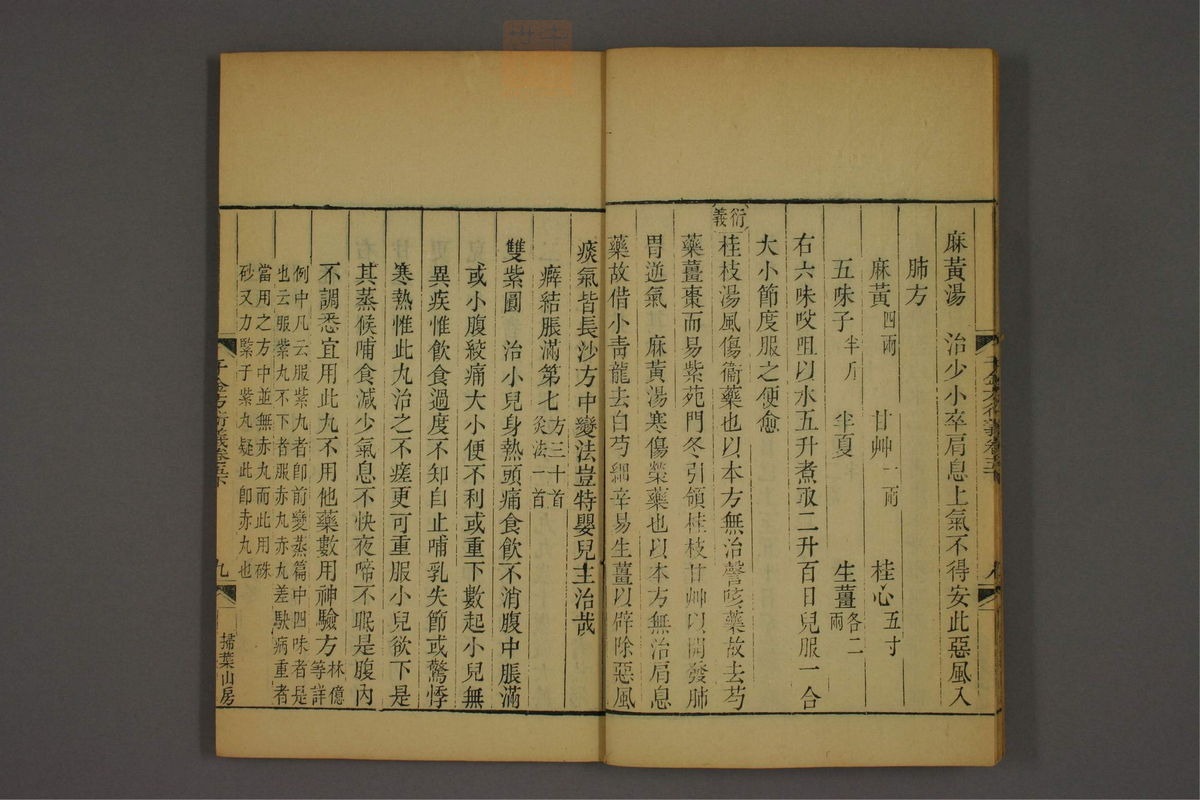 麻黃湯　治少小卒肩息上氣不得安此惡風入
肺方
麻黃四兩　甘艸一兩　桂心五寸
五味子半斤　半夏　生薑各二兩
右六味㕮咀以水五升煮取二升百日兒服一合
大小節度服之便愈
衍義
桂枝湯風傷衞藥也以本方無治謦咳藥故去芍
藥薑棗而易紫苑門冬引領桂枝甘艸以開發肺
胃逆氣　麻黃湯寒傷榮藥也以本方無治肩息
藥故借小青龍去白芍細辛易生薑以辟除惡風
痰氣皆長沙方中變法豈特嬰兒主治哉
癖結脹滿第七方三十首灸法一首
雙紫圓　治小兒身熱頭痛食飲不消腹中脹滿
或小腹絞痛大小便不利或重下數起小兒無
異疾惟飲食過度不知自止哺乳失節或驚悸
寒熱惟此丸治之不瘥更可重服小兒欲下是
其蒸候哺食減少氣息不快夜啼不眠是腹內
不調悉宜用此丸不用他藥數用神驗方林億等詳
例中凡云服紫丸者卽前變蒸篇中四味者是
也云服紫丸不下者服赤丸赤丸差駃病重者
當用之方中並無赤丸而此用硃
砂又力緊于紫丸疑此卽赤丸也
千金方衍義卷五下
九
掃葉山房